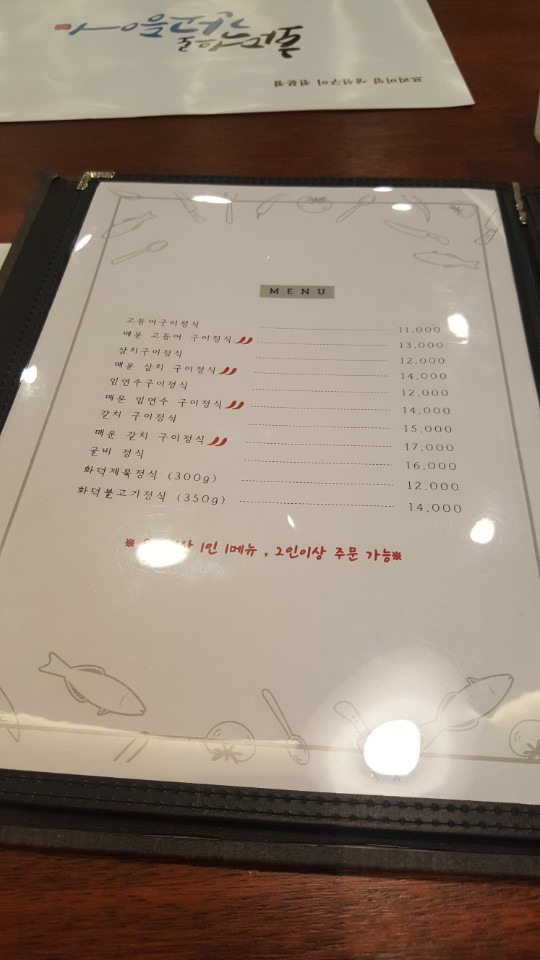 프리미엄 생선구이 전문점
MENU
고등어구이정식 11,000
매운 고등어 구이정식 13,000
삼치구이정식 12,000
매운 삼치 구이정식 14,000
임연수구이정식 12,000
매운 임연수 구이정식 14,000
갈치 구이정식 15,000
매운 갈치 구이정식 17,000
굴비 정식 16,000
화덕제육정식 (300g) 12,000
화덕불고기정식 (350g) 14,000
1인 1메뉴, 2인이상 주문 가능※